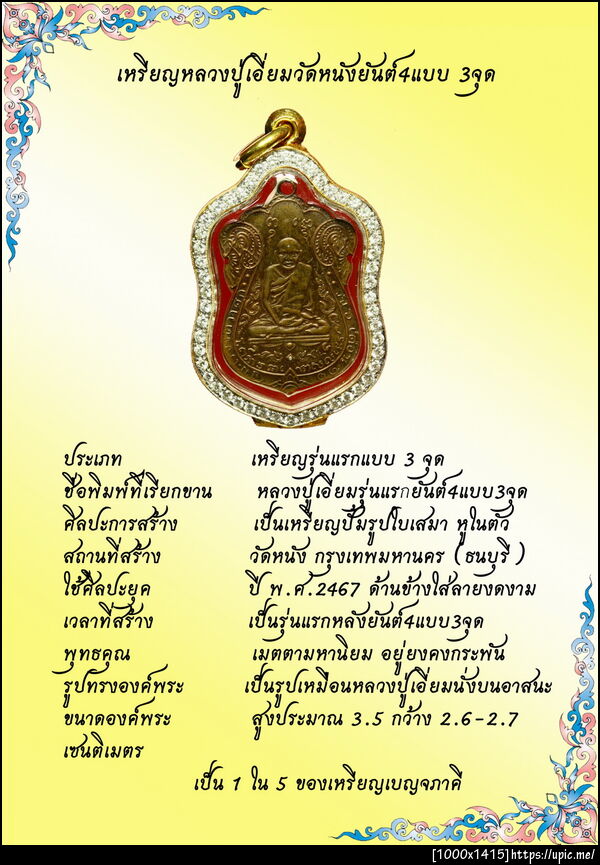 เหรียญหลวงปู่เอี่ยมวัดหนังยันต์4แบบ 3จุด
ประเภท เหรียญรุ่นแรกแบบ 3 จุด
ชื่อพิมพ์ที่เรียกขาน หลวงปู่เอี่ยมรุ่นแรกยันต์4แบบ3จุด
ศิลปะการสร้าง เป็นเหรียญปั๊มรูปใบเสมา หูในตัว
สถานที่สร้าง วัดหนัง กรุงเทพมหานคร (ธนบุรี )
ใช้ศิลปะยุค ปี พ.ศ.2467 ด้านข้างใส่ลายงดงาม
เวลาที่สร้าง เป็นรุ่นแรกหลังยันต์4แบบ3จุด
พุทธคุณ เมตตามหานิยม อยู่ยงคงกระพัน
รูปทรงองค์พระ เป็นรูปเหมือนหลวงปู่เอี่ยมนั่งบนอาสนะ
ขนาดองค์พระ สูงประมาณ 3.5 กว้าง 2.6-2.7
เซนติเมตร
เป็น 1 ใน 5 ของเหรียญเบญจภาคี
[1000x1415]https://upic.me/